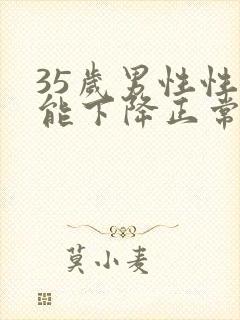 35歲男性性
能下降正常
莫小麦